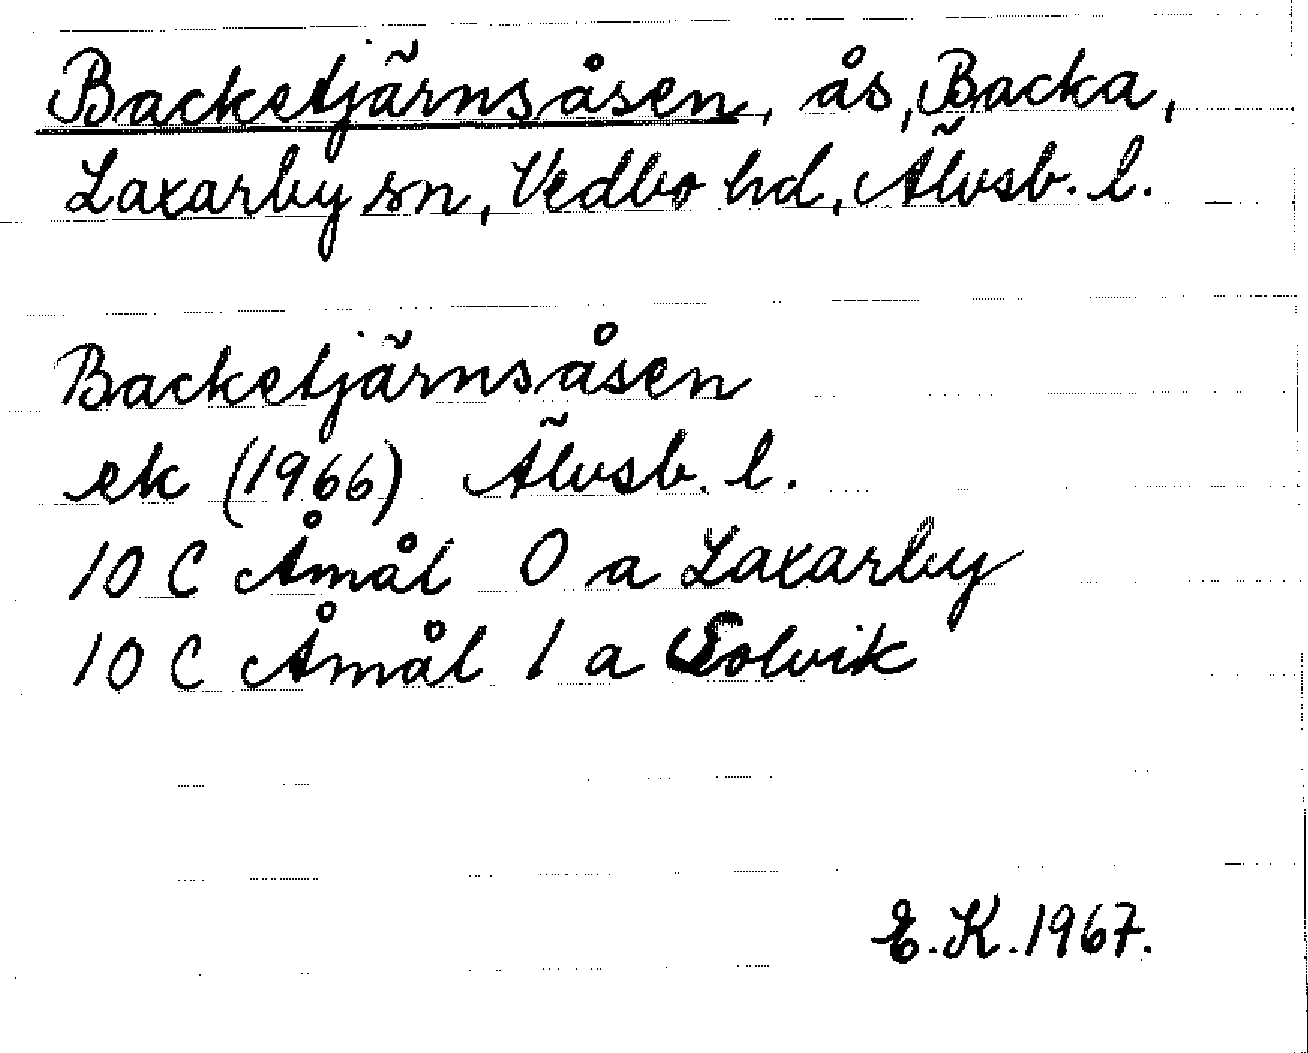 Backetjärnsåsen, ås, Backa,
Laxarby sn, Vedbo hd, Älvsb. l.
Backetjärnsåsen
ek (1966) Älvsb. l.
10 C Åmål 0 a Laxarby
10 C Åmål 1 a Solvik
E. K. 1967.